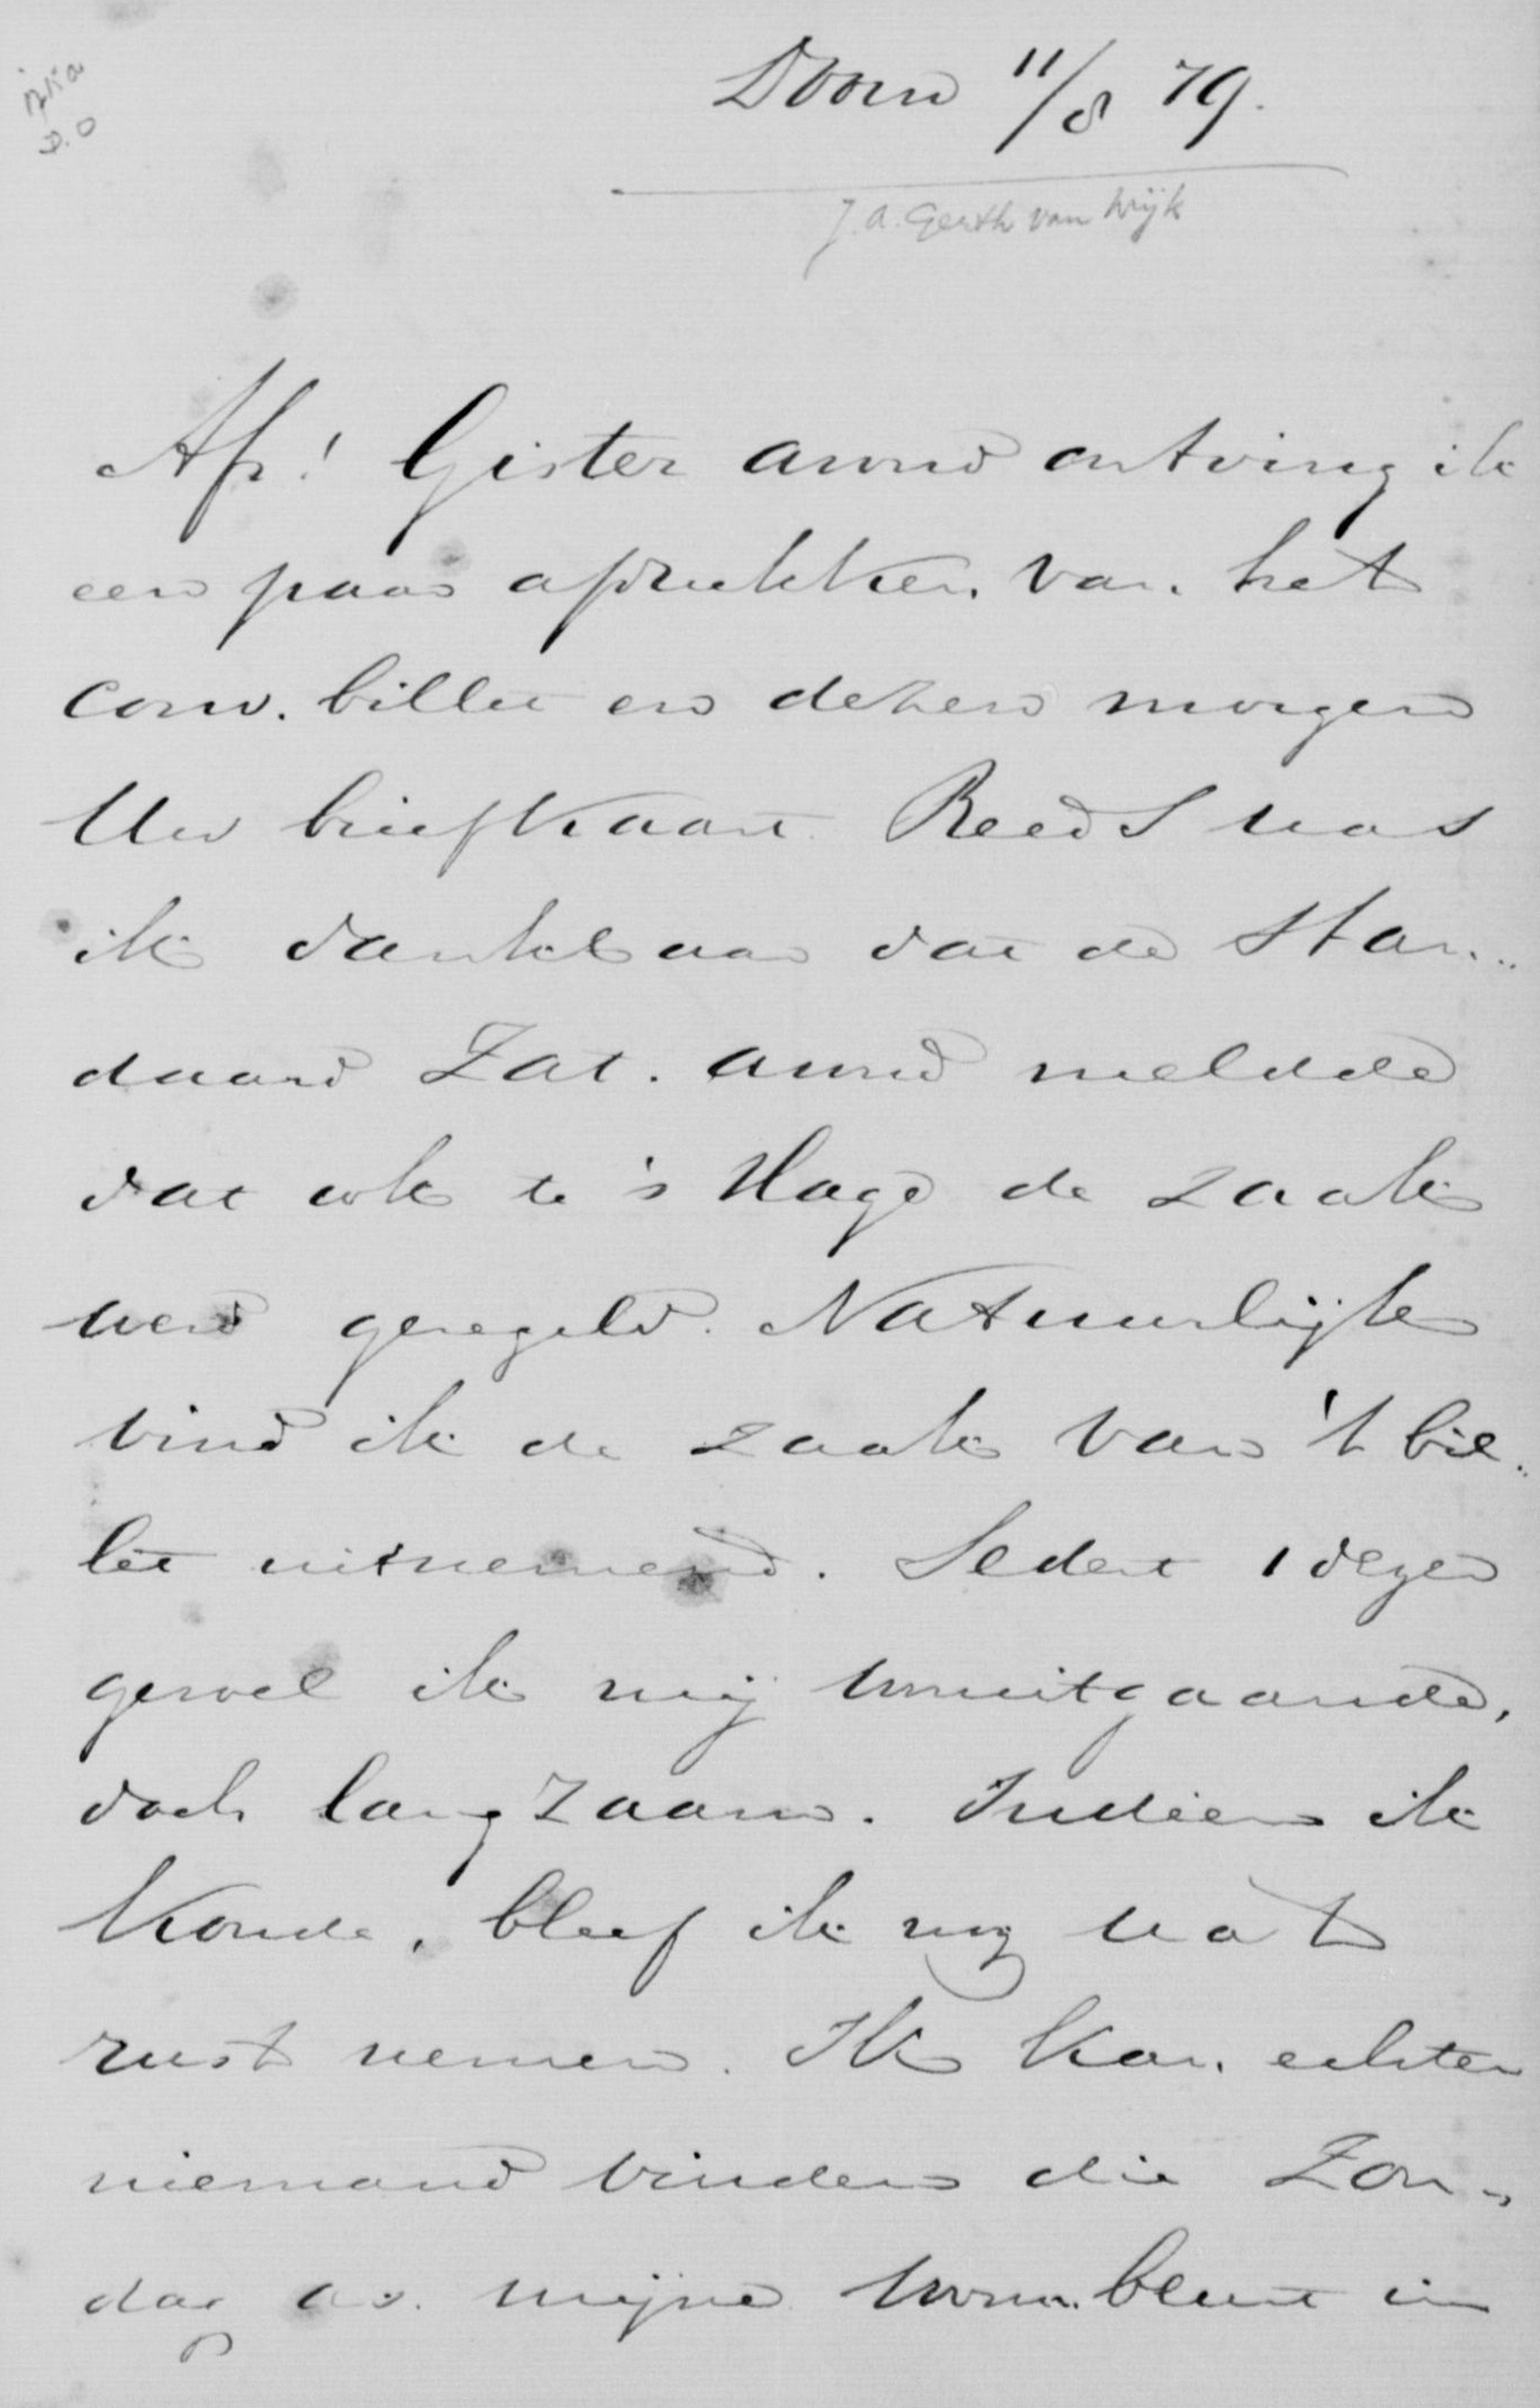 Doorn 11/8 79.
J. A. Gerth van Wijk
D. O
Af! Gister avond ontving ik
een paar afdrukken van het
conv. billet en dezen morgen
Uw briefkaart. Reeds was
ik dankbaar dat de Stan-
daard Zat. avond meldde
dat ook te 's Hage de zaak
werd geregeld. Natuurlijk
vind ik de zaak van 't bil-
let uitnemend. Sedert 1 dezer
gevoel ik mij vooruitgaande,
doch langzaam. Indien ik
konde, bleef ik nog wat
rust nemen. Ik kan echter
niemand vinden die Zon-
dag as. mijne voorm. beurt in